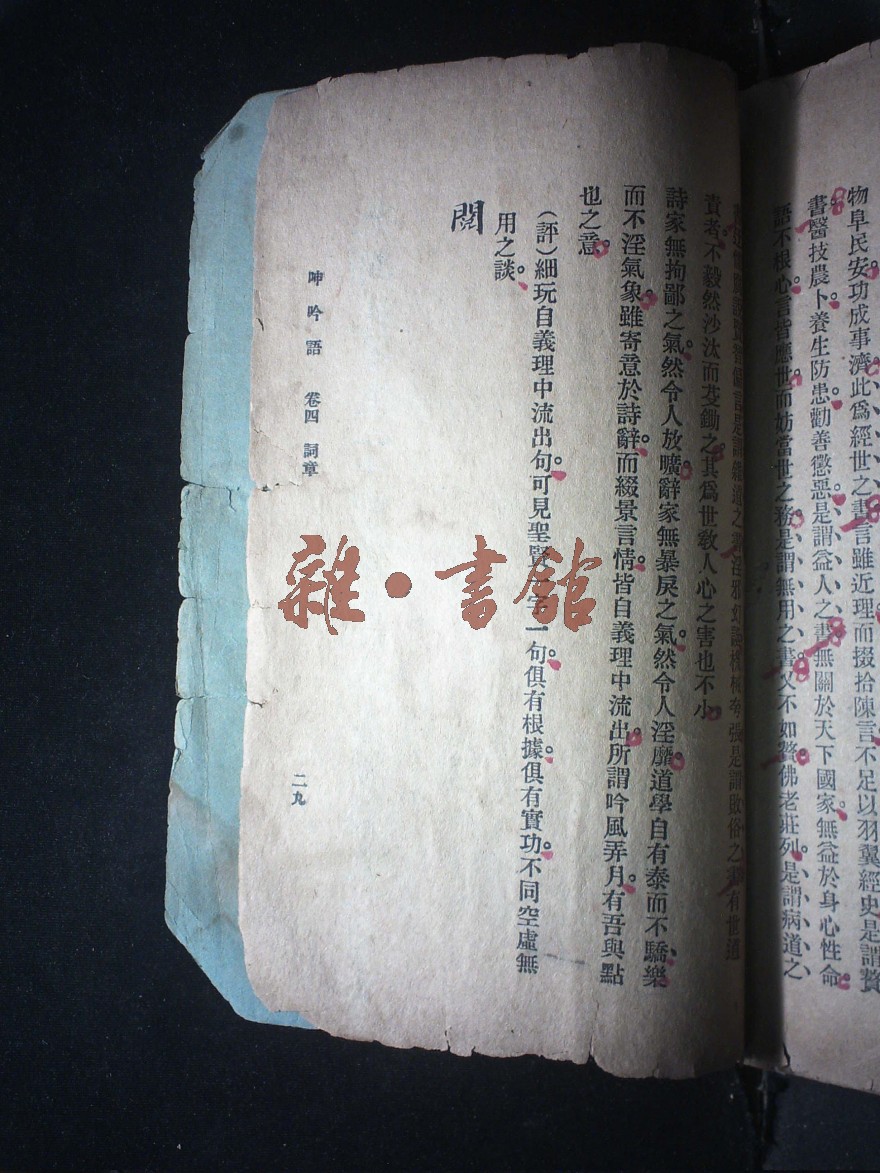 物阜民安功成事濟此爲經世之書言雖近理而掇拾陳言不足以羽翼經史是謂贅
書醫技農卜養生防患勸善懲惡是謂益人之書無關於天下國家無益於身心性命
語不根心言皆應世而妨當世之務是謂無用之書又不如贅佛老莊列是謂病道之
誇張是謂敗俗之書有世道
責者不毅然沙汰而芟鋤之其爲世敎人心之害也不小
詩家無拘鄙之氣然令人放曠辭家無暴戾之氣然令人淫靡道學自有泰而不驕樂
而不淫氣象雖寄意於詩辭而綴景言情皆自義理中流出所謂吟風弄月有吾與點
也之意
(評)細玩自義理中流出句可見聖賢一句俱有根據俱有實功不同空虛無
用之談
閱
呻吟語 卷四 詞章
二九
雜·書館